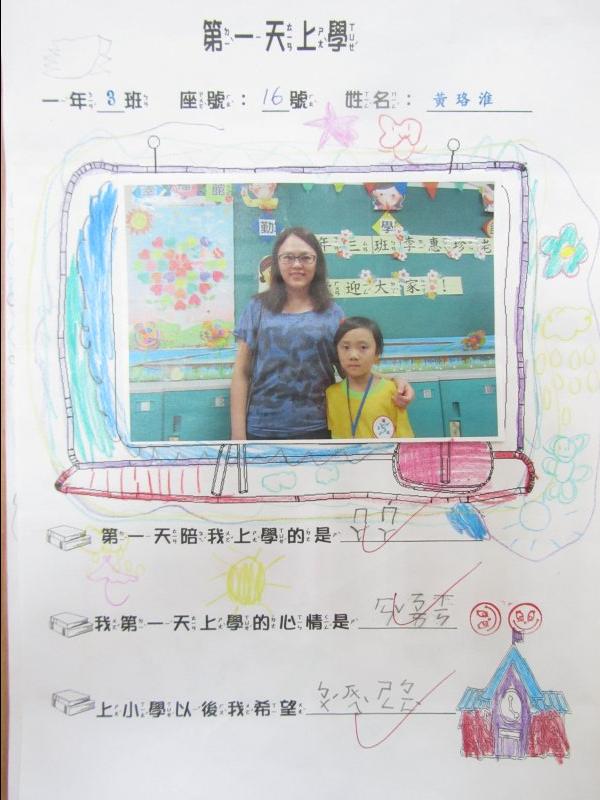 第一天上學
一年 3 班 座號：16 號 姓名：黃珞淮
館
勤 學
年三班李惠珍老
迎大家！
第一天陪我上學的是 ㄇㄇ
我第一天上學的心情是
上小學以後我希望